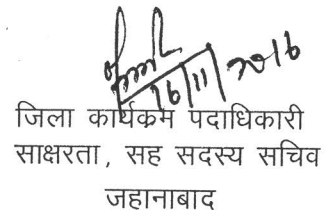 16/11/2016
जिला कार्यक्रम पदाधिकारी
साक्षरता, सह सदस्य सचिव
जहानाबाद